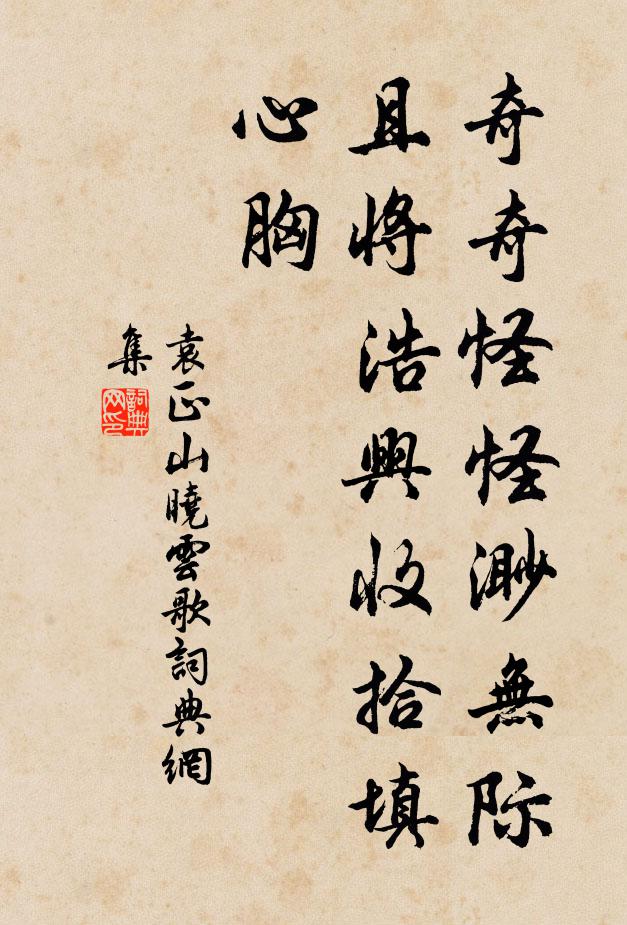 奇奇怪怪渺無际
且將浩興收拾填
心胸
袁正山曉雲歌詞典網
集
詞典
网印